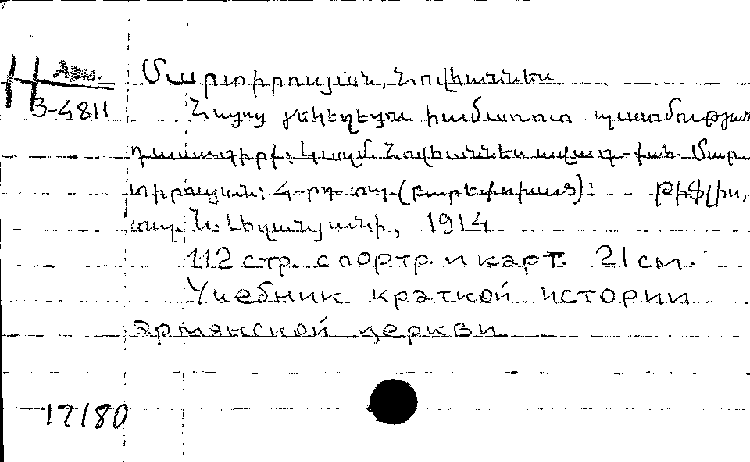 Н Арм.
В-4811
Մարտիրոսյան, Հովհաննես
Հայոց եկեղեցու համառոտ պատմության
դասագիրք: Կազմ. Հովհաննես ավագ-քահ. Մար
տիրոսյան: 4-րդ տպ. (բարեփոխած): Թիֆլիս,
տպ. Ն. Աղանյանի, 1914
112 стр. с портр. и карт. 21 см.
Учебник краткой истории
армянской церкви
17180